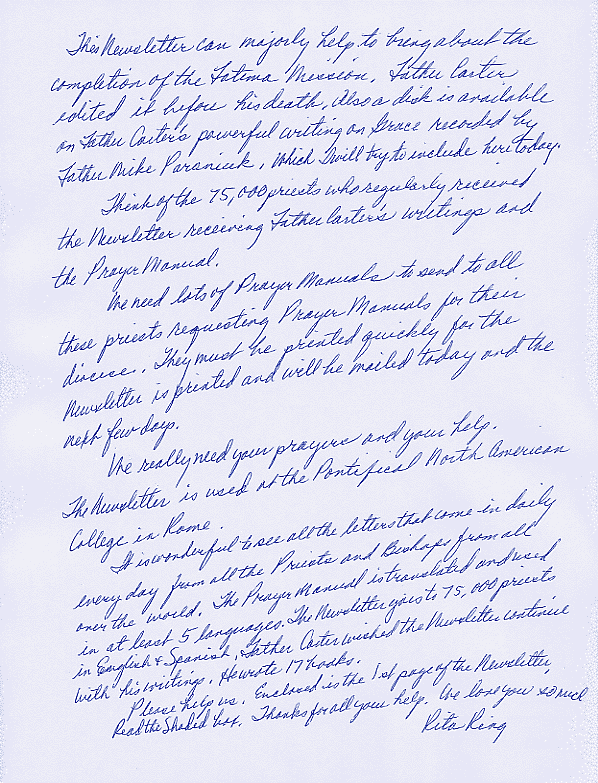 This Newsletter can majorly help to bring about the
completion of the Fatima Mission. Father Carter
edited it before his death. Also a disk is available
on Father Carter's powerful writing on Grace recorded by
Father Mike Paraniuk, which I will try to include here today.
Think of the 75,000 priests who regularly received
the Newsletter receiving Father Carter's writings and
the Prayer Manual.
We need lots of Prayer Manuals to send to all
these priests requesting Prayer Manuals for their
diocese. They must be printed quickly for the
Newsletter is printed and will be mailed today and the
next few days.
We really need your prayers and your help.
The Newsletter is used at the Pontifical North American
College in Rome.
It is wonderful to see all the letters that come in daily
every day from all the Priests and Bishops from all
over the world. The Prayer Manual is translated and used
in at least 5 languages. The Newsletter goes to 75,000 priests
in English & Spanish. Father Carter wished the Newsletter continue
with his writings. He wrote 17 books.
Please help us. Enclosed is the 1st page of the Newsletter,
Read the Shaded box. Thanks for all your help. We love you so much
Rita Ring